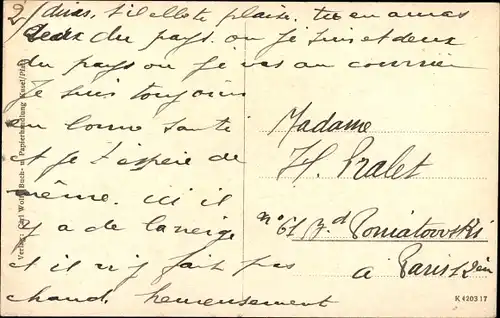 2/ diras, s'il elle te plaise, tu en auras
deux du pays ou je suis et deux
du pays ou je vas au courrier
Je suis toujours
en bonne santé
et je t'espère de
même. ici il
y a de la neige
et il n'y fait pas
chaud, heureusement
Madame
H. Pralet
n° 61 Bd Poniatowski
à Paris 12 ièm
Verlag: Carl Wolf, Buch- u. Papierhandlung Kusel/Pfalz
K 4203 17